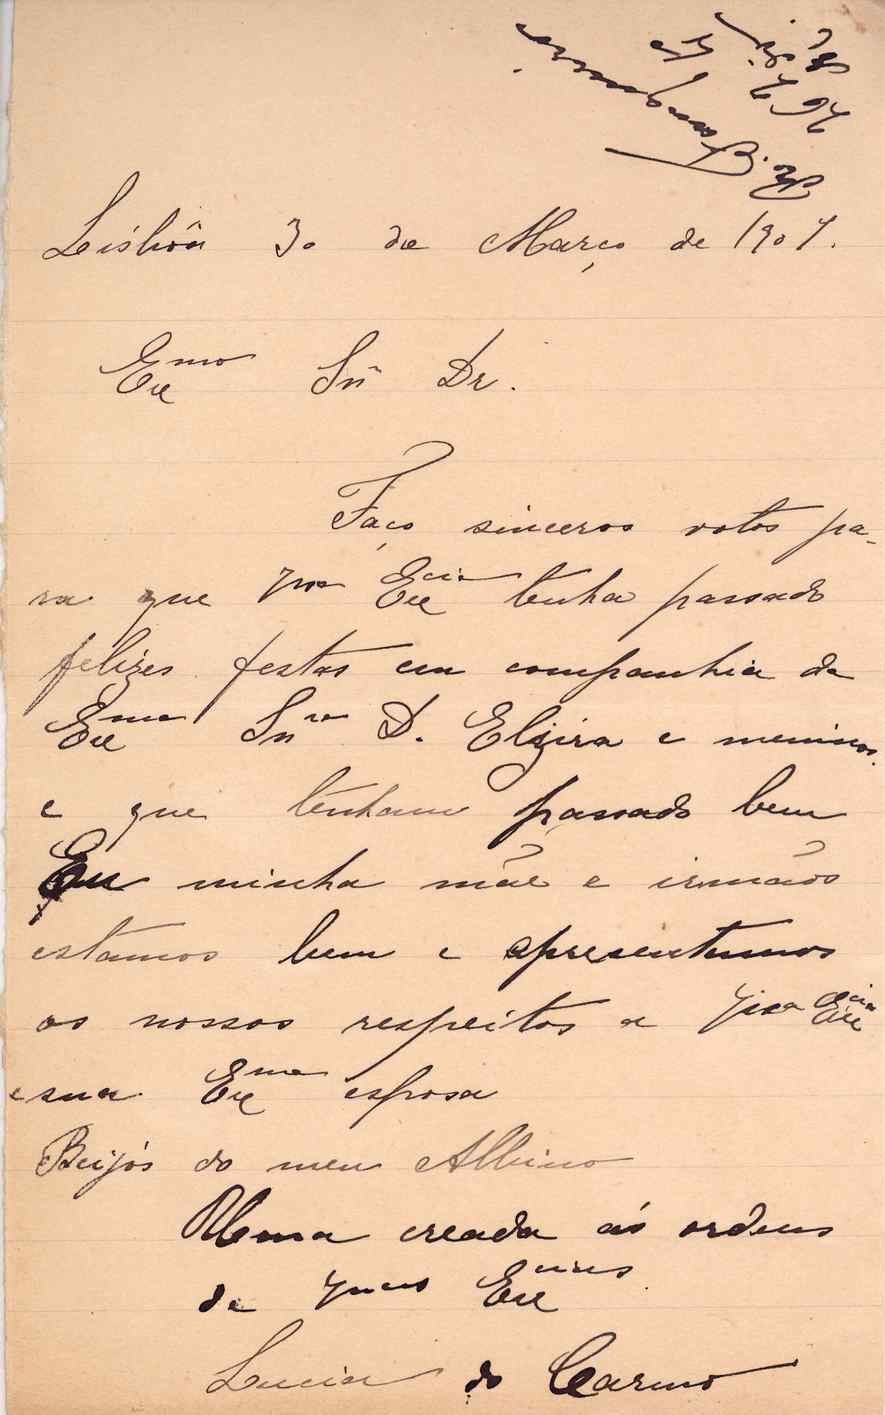 Lisbôa 30 de Março de 1907.
Exmo Snr Dr.
Faço sinceros votos pa-
ra que Vossa Excia tenha passado
felizes festas em companhia da
Exma Snra D. Elzira e meninos.
e que tenham passado bem
Eu minha mãe e irmãos
estamos bem e apresentamos
os nossos respeitos a Vossa Excia
e sua Exma esposa
Beijos do meu Albino
Uma creada ás ordens
de Vossas Excias
Lucia do Carmo